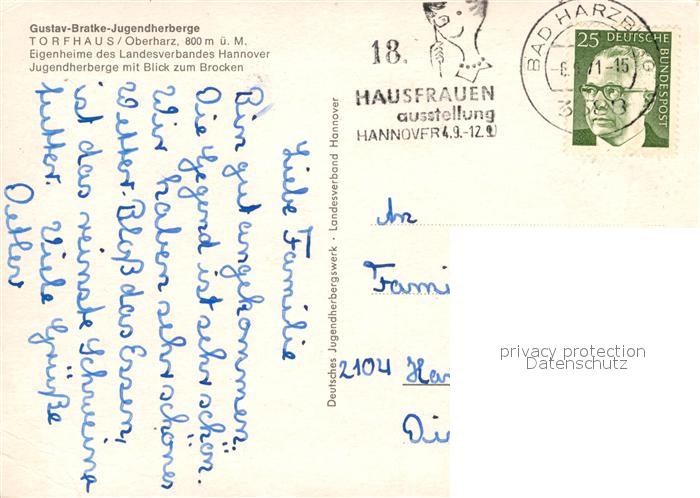 Gustav-Bratke-Jugendherberge
TORFHAUS/Oberharz, 800 m ü. M.
Eigenheime des Landesverbandes Hannover
Jugendherberge mit Blick zum Brocken
Liebe Familie
Bin gut angekommen.
Die Gegend ist sehr schön.
Wir haben sehr schönes
Wetter. Bloß das Essen,
ist das reinste Schweine
futter. Viele Grüße
Deutsches Jugendherbergswerk · Landesverband Hannover
18.
HAUSFRAUEN
ausstellung
HANNOVER 4.9.-12.9.
BAD HARZBURG
71-15
25 DEUTSCHE BUNDESPOST
An
Fami
2104 Ha
privacy protection
Datenschutz